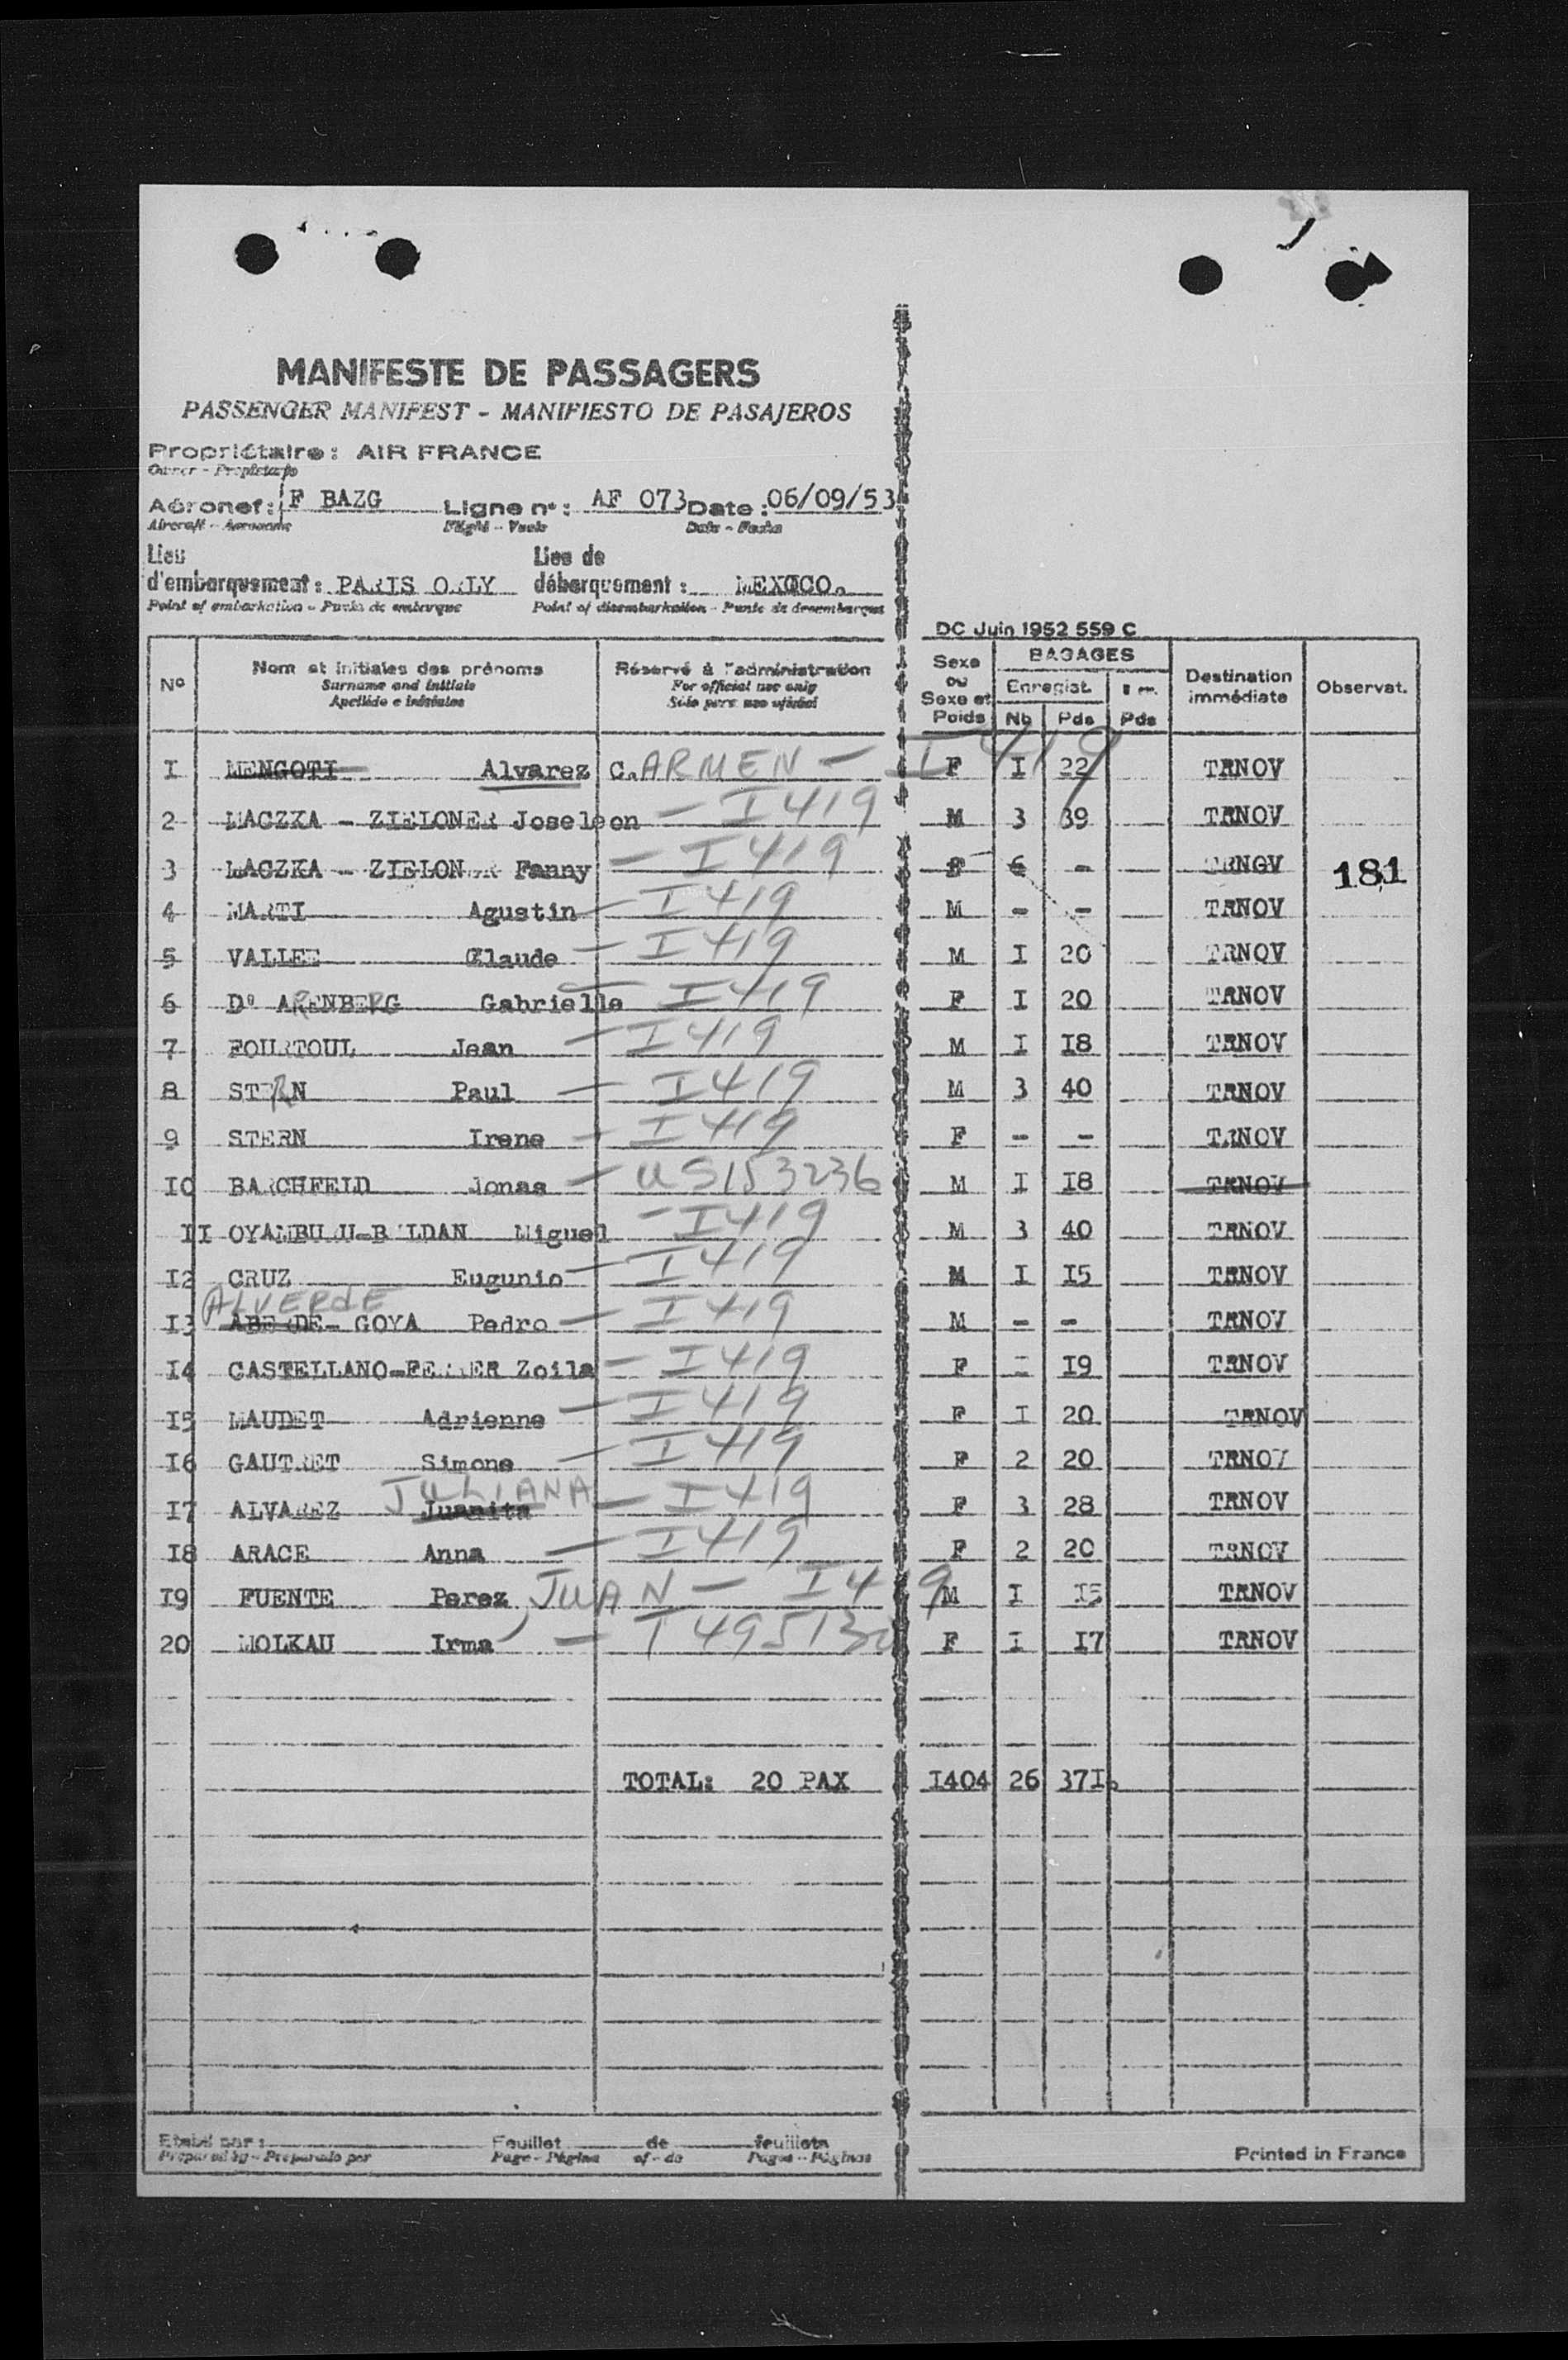 MANIFESTE DE PASSAGERS
PASSENGER MANIFEST - MANIFIESTO DE PASAJEROS
Propriétaire : AIR FRANCE
Owner - Propietario
Aéronef : F BAZG Ligne n° : AF 073 Date : 06/09/53
Aircraft - Aeronave Flight - Vuelo Date - Fecha
Lieu d'embarquement : PARIS ORLY Lieu de débarquement : MEXOCO.
Point of embarkation - Punto de embarque Point of disembarkation - Punto de desembarque
DC Juin 1952 559 C
N° Nom et initiales des prénoms Réservé à l'administration Sexe ou Sexe et Poids BAGAGES Destination immédiate Observat.
Surname and initials For official use only Enregist.
Apellido e iniciales Sólo para uso oficial Nb Pds Pds
I MENGOTI Alvarez C. ARMEN - I 419 F I 22 TRNOV
2 MACZKA - ZIELONER Joseleon - I 419 M 3 39 TRNOV
3 MACZKA - ZIELONER Fanny - I 419 F 6 - TRNOV 181
4 MARTI Agustin - I 419 M - - TRNOV
5 VALLEE Claude - I 419 M I 20 TRNOV
6 D° ARENBERG Gabrielle - I 419 F I 20 TRNOV
7 FOURTOUL Jean - I 419 M I I8 TRNOV
8 STERN Paul - I 419 M 3 40 TRNOV
9 STERN Irene - I 419 F - - TRNOV
IO BARCHFELD Jonas - US153236 M I I8 TRNOV
II OYAMBURU-B LDAN Miguel - I 419 M 3 40 TRNOV
I2 CRUZ Eugunio - I 419 M I I5 TRNOV
ALVERDE
I3 ABERDE- GOYA Pedro - I 419 M - - TRNOV
I4 CASTELLANO-FERRER Zoila - I 419 F I I9 TRNOV
I5 MAUDET Adrienne - I 419 F I 20 TRNOV
I6 GAUTRET Simone - I 419 F 2 20 TRNOV
JULIANA
I7 ALVAREZ Juanita - I 419 F 3 28 TRNOV
I8 ARACE Anna - I 419 F 2 20 TRNOV
I9 FUENTE Perez, JUAN - I 419 M I I5 TRNOV
20 MOLKAU Irma - T 495130 F I I7 TRNOV
TOTAL: 20 PAX I404 26 37I.
Etabli par : Feuillet de feuillets
Prepared by - Preparado por Page - Página of - de Pages - Páginas
Printed in France